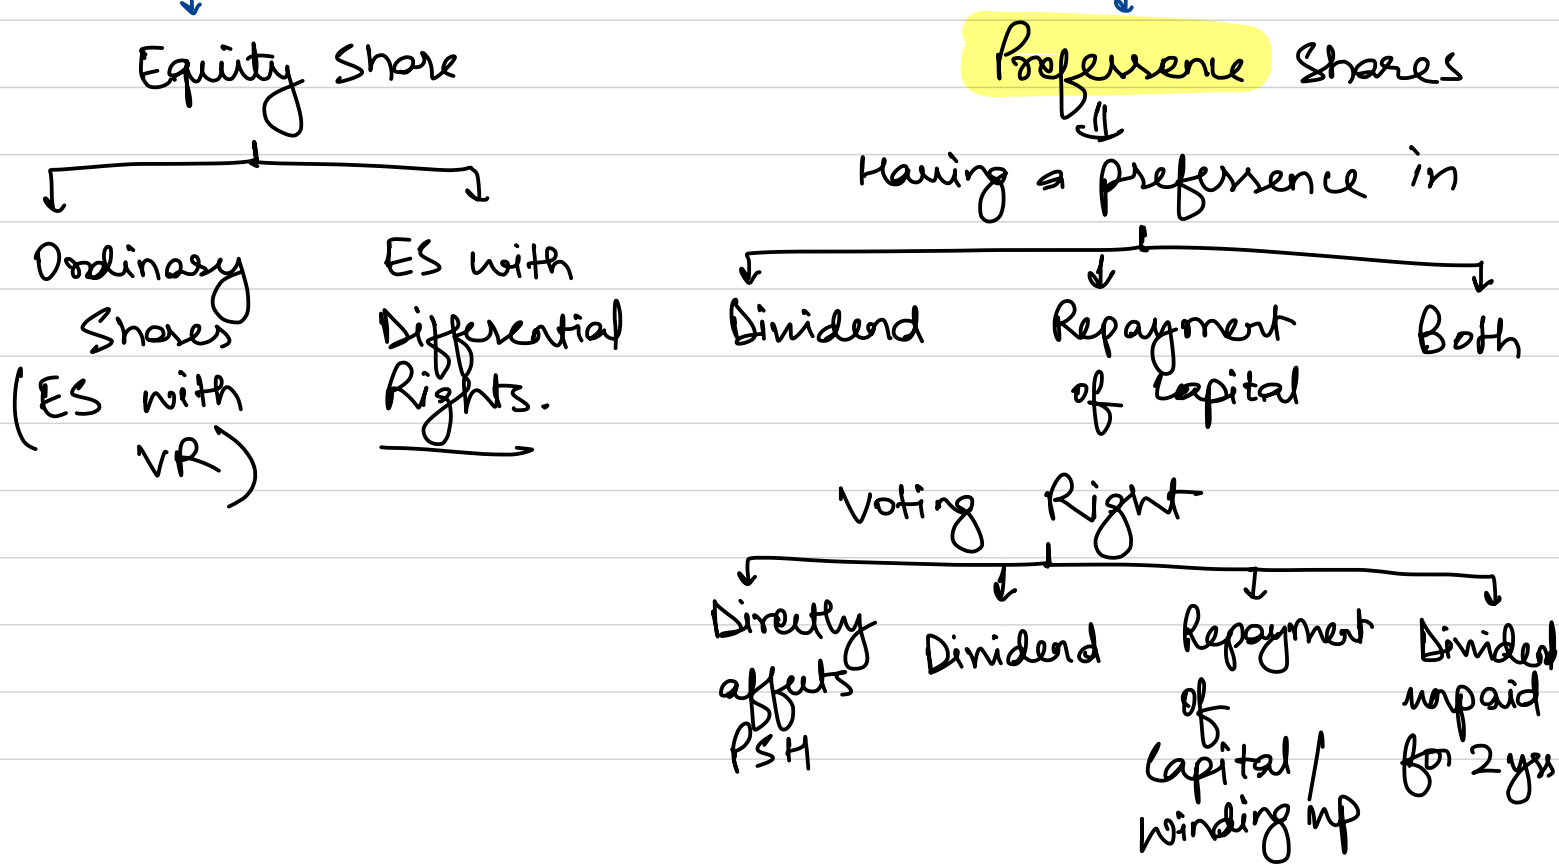 Equity Share
Ordinary
Shares
(ES with
VR)
ES with
Differential
Rights.
Preference Shares
Having a preference in
Dividend
Repayment
of Capital
Both
Voting Right
Directly
affects
PSH
Dividend
Repayment
of
Capital /
winding up
Dividend
unpaid
for 2 yrs